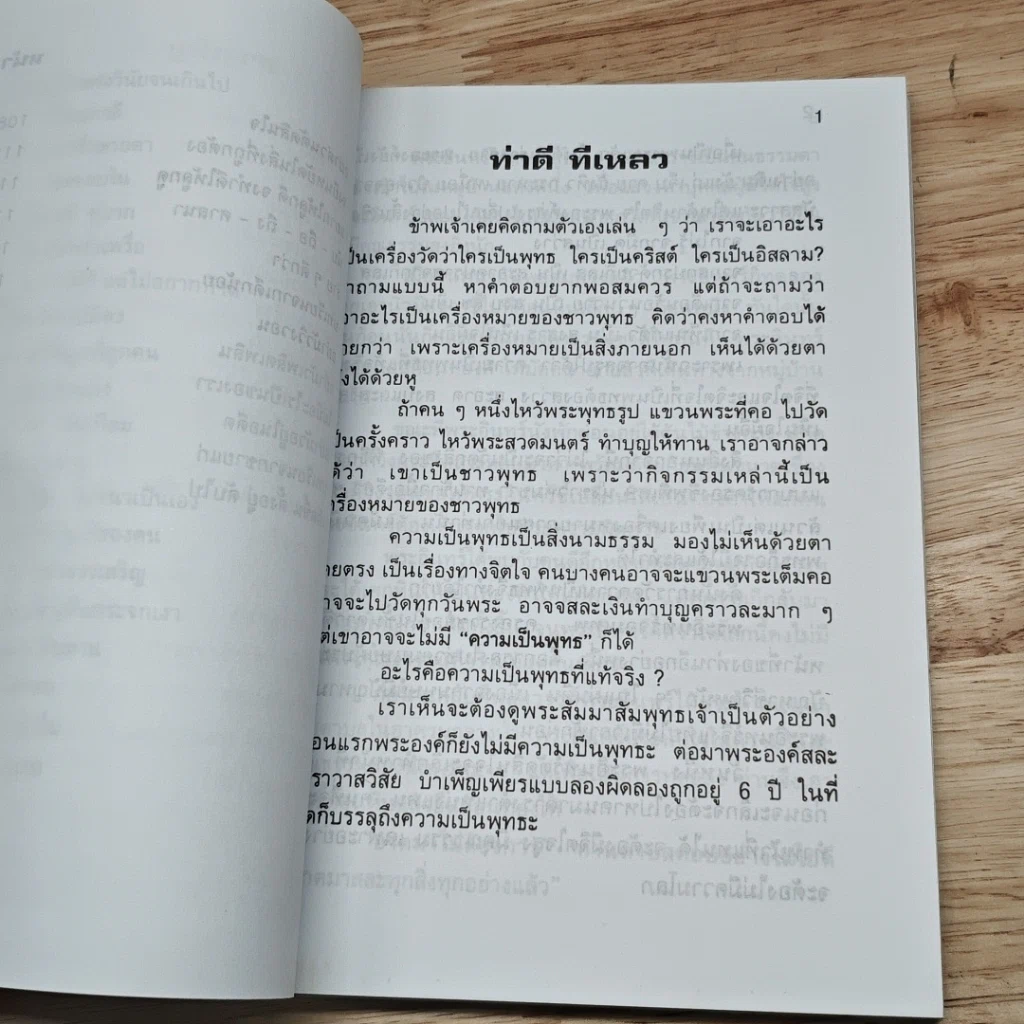 1
ท่าดี ทีเหลว
ข้าพเจ้าเคยคิดถามตัวเองเล่น ๆ ว่า เราจะเอาอะไร
เป็นเครื่องวัดว่าใครเป็นพุทธ ใครเป็นคริสต์ ใครเป็นอิสลาม?
คำถามแบบนี้ หาคำตอบยากพอสมควร แต่ถ้าจะถามว่า
เอาอะไรเป็นเครื่องหมายของชาวพุทธ คิดว่าคงหาคำตอบได้
ง่ายกว่า เพราะเครื่องหมายเป็นสิ่งภายนอก เห็นได้ด้วยตา
ฟังได้ด้วยหู
ถ้าคน ๆ หนึ่งไหว้พระพุทธรูป แขวนพระที่คอ ไปวัด
เป็นครั้งคราว ไหว้พระสวดมนตร์ ทำบุญให้ทาน เราอาจกล่าว
ได้ว่า เขาเป็นชาวพุทธ เพราะว่ากิจกรรมเหล่านี้เป็น
เครื่องหมายของชาวพุทธ
ความเป็นพุทธเป็นสิ่งนามธรรม มองไม่เห็นด้วยตา
โดยตรง เป็นเรื่องทางจิตใจ คนบางคนอาจจะแขวนพระเต็มคอ
อาจจะไปวัดทุกวันพระ อาจจสละเงินทำบุญคราวละมาก ๆ
แต่เขาอาจจะไม่มี “ความเป็นพุทธ” ก็ได้
อะไรคือความเป็นพุทธที่แท้จริง ?
เราเห็นจะต้องดูพระสัมมาสัมพุทธเจ้าเป็นตัวอย่าง
ตอนแรกพระองค์ก็ยังไม่มีความเป็นพุทธะ ต่อมาพระองค์สละ
ฆราวาสวิสัย บำเพ็ญเพียรแบบลองผิดลองถูกอยู่ 6 ปี ในที่
สุดก็บรรลุถึงความเป็นพุทธะ